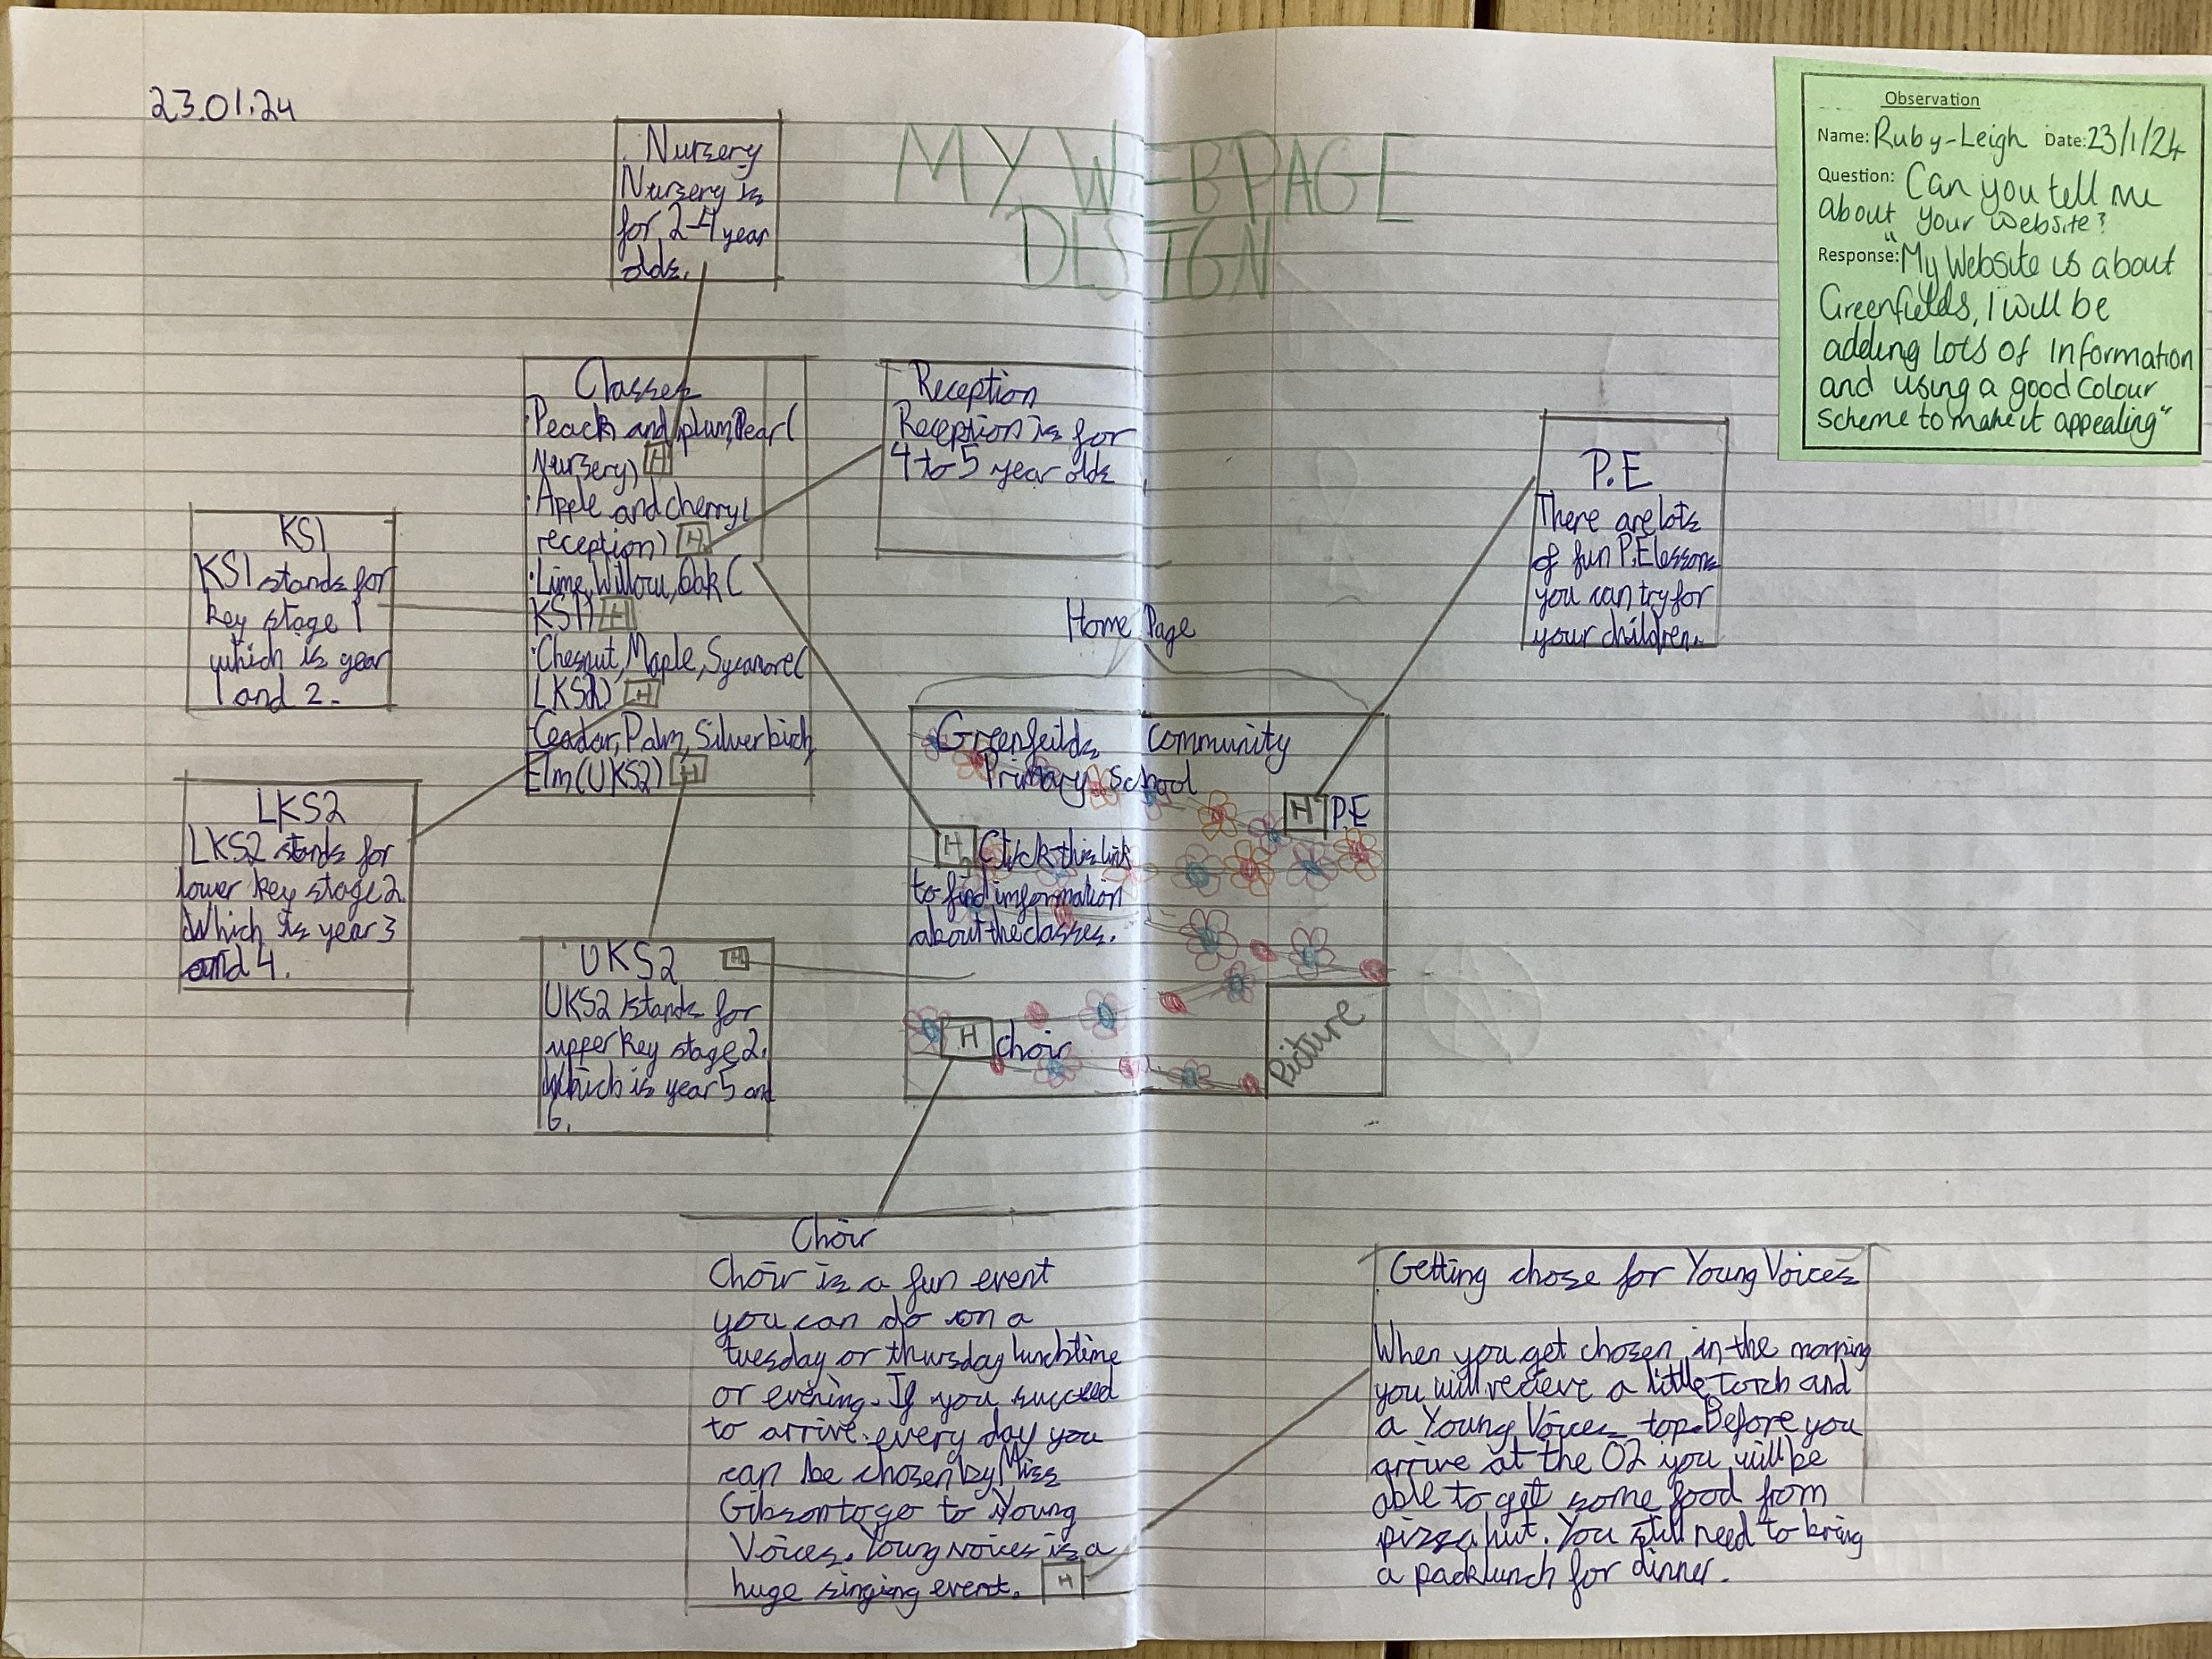 23.01.24
MY WEBPAGE
DESIGN
Observation
Name: Ruby-Leigh Date: 23/1/24
Question: Can you tell me
about your website?
Response: "My Website is about
Greenfields, I will be
adding lots of information
and using a good colour
scheme to make it appealing"
Nursery
Nursery is
for 2-4 year
olds.
Classes
·Peach and plum, Pear(
Nursery) H
·Apple and cherry(
reception) H
·Lime, Willow, Oak(
KS1) H
·Chesnut, Maple, Sycamore(
LKS2) H
·Ceadar, Palm, Silver birch,
Elm(UKS2) H
Reception
Reception is for
4 to 5 year olds
KS1
KS1 stands for
key stage 1
which is year
1 and 2.
LKS2
LKS2 stands for
lower key stage 2.
Which is year 3
and 4.
UKS2 H
UKS2 stands for
upper key stage 2.
Which is year 5 and
6.
Home Page
Greenfeilds Community
Primary School
H P.E
H Click this link
to find information
about the classes.
H choir
Picture
P.E
There are lots
of fun P.E lessons
you can try for
your children.
Choir
Choir is a fun event
you can do on a
tuesday or thursday lunchtime
or evening. If you succeed
to arrive every day you
can be chosen by Miss
Gibson to go to Young
Voices. Young voices is a
huge singing event. H
Getting chose for Young Voices
When you get chosen in the morning
you will recieve a little torch and
a Young Voices top. Before you
arrive at the O2 you will be
able to get some food from
pizza hut. You still need to bring
a packlunch for dinner.